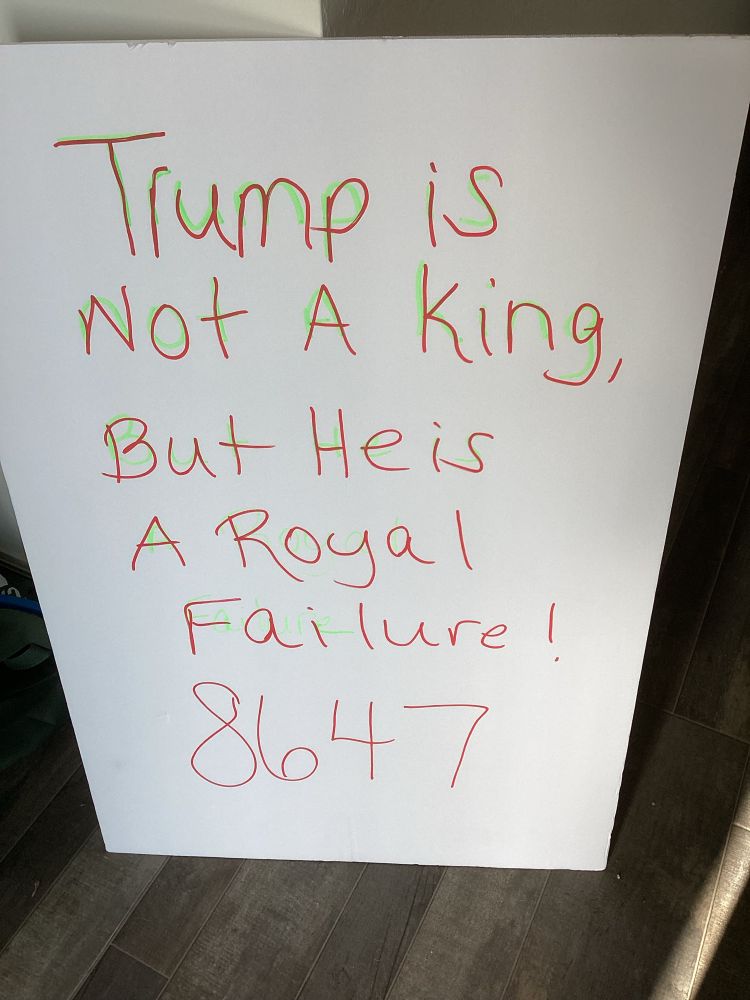 Trump is
Not A King,
But He is
A Royal
Failure!
8647